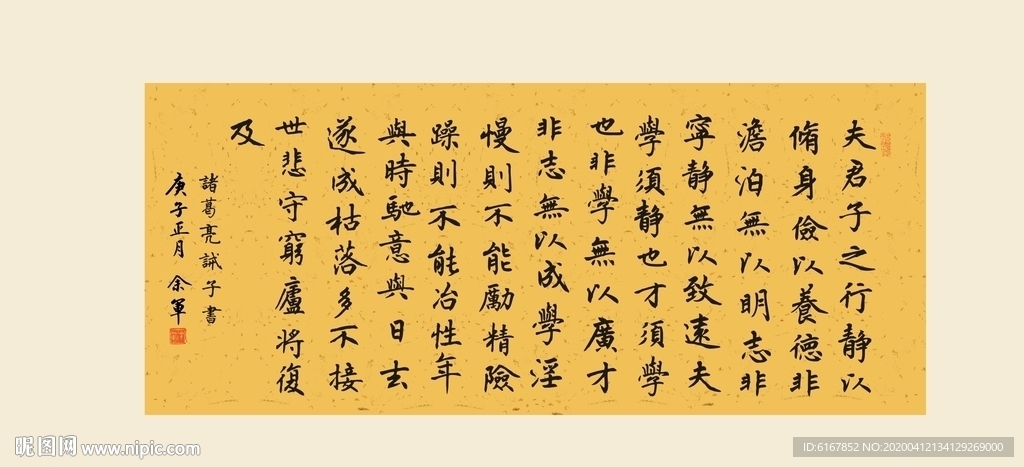 夫君子之行静以
脩身儉以養德非
澹泊無以明志非
寜静無以致遠夫
學須静也才須學
也非學無以廣才
非志無以成學淫
慢則不能勵精險
躁則不能冶性年
與時馳意與日去
遂成枯落多不接
世悲守窮廬將復
及
諸葛亮誡子書
庚子正月 余軍
昵图网 www.nipic.com
ID:6167852 NO:20200412134129269000